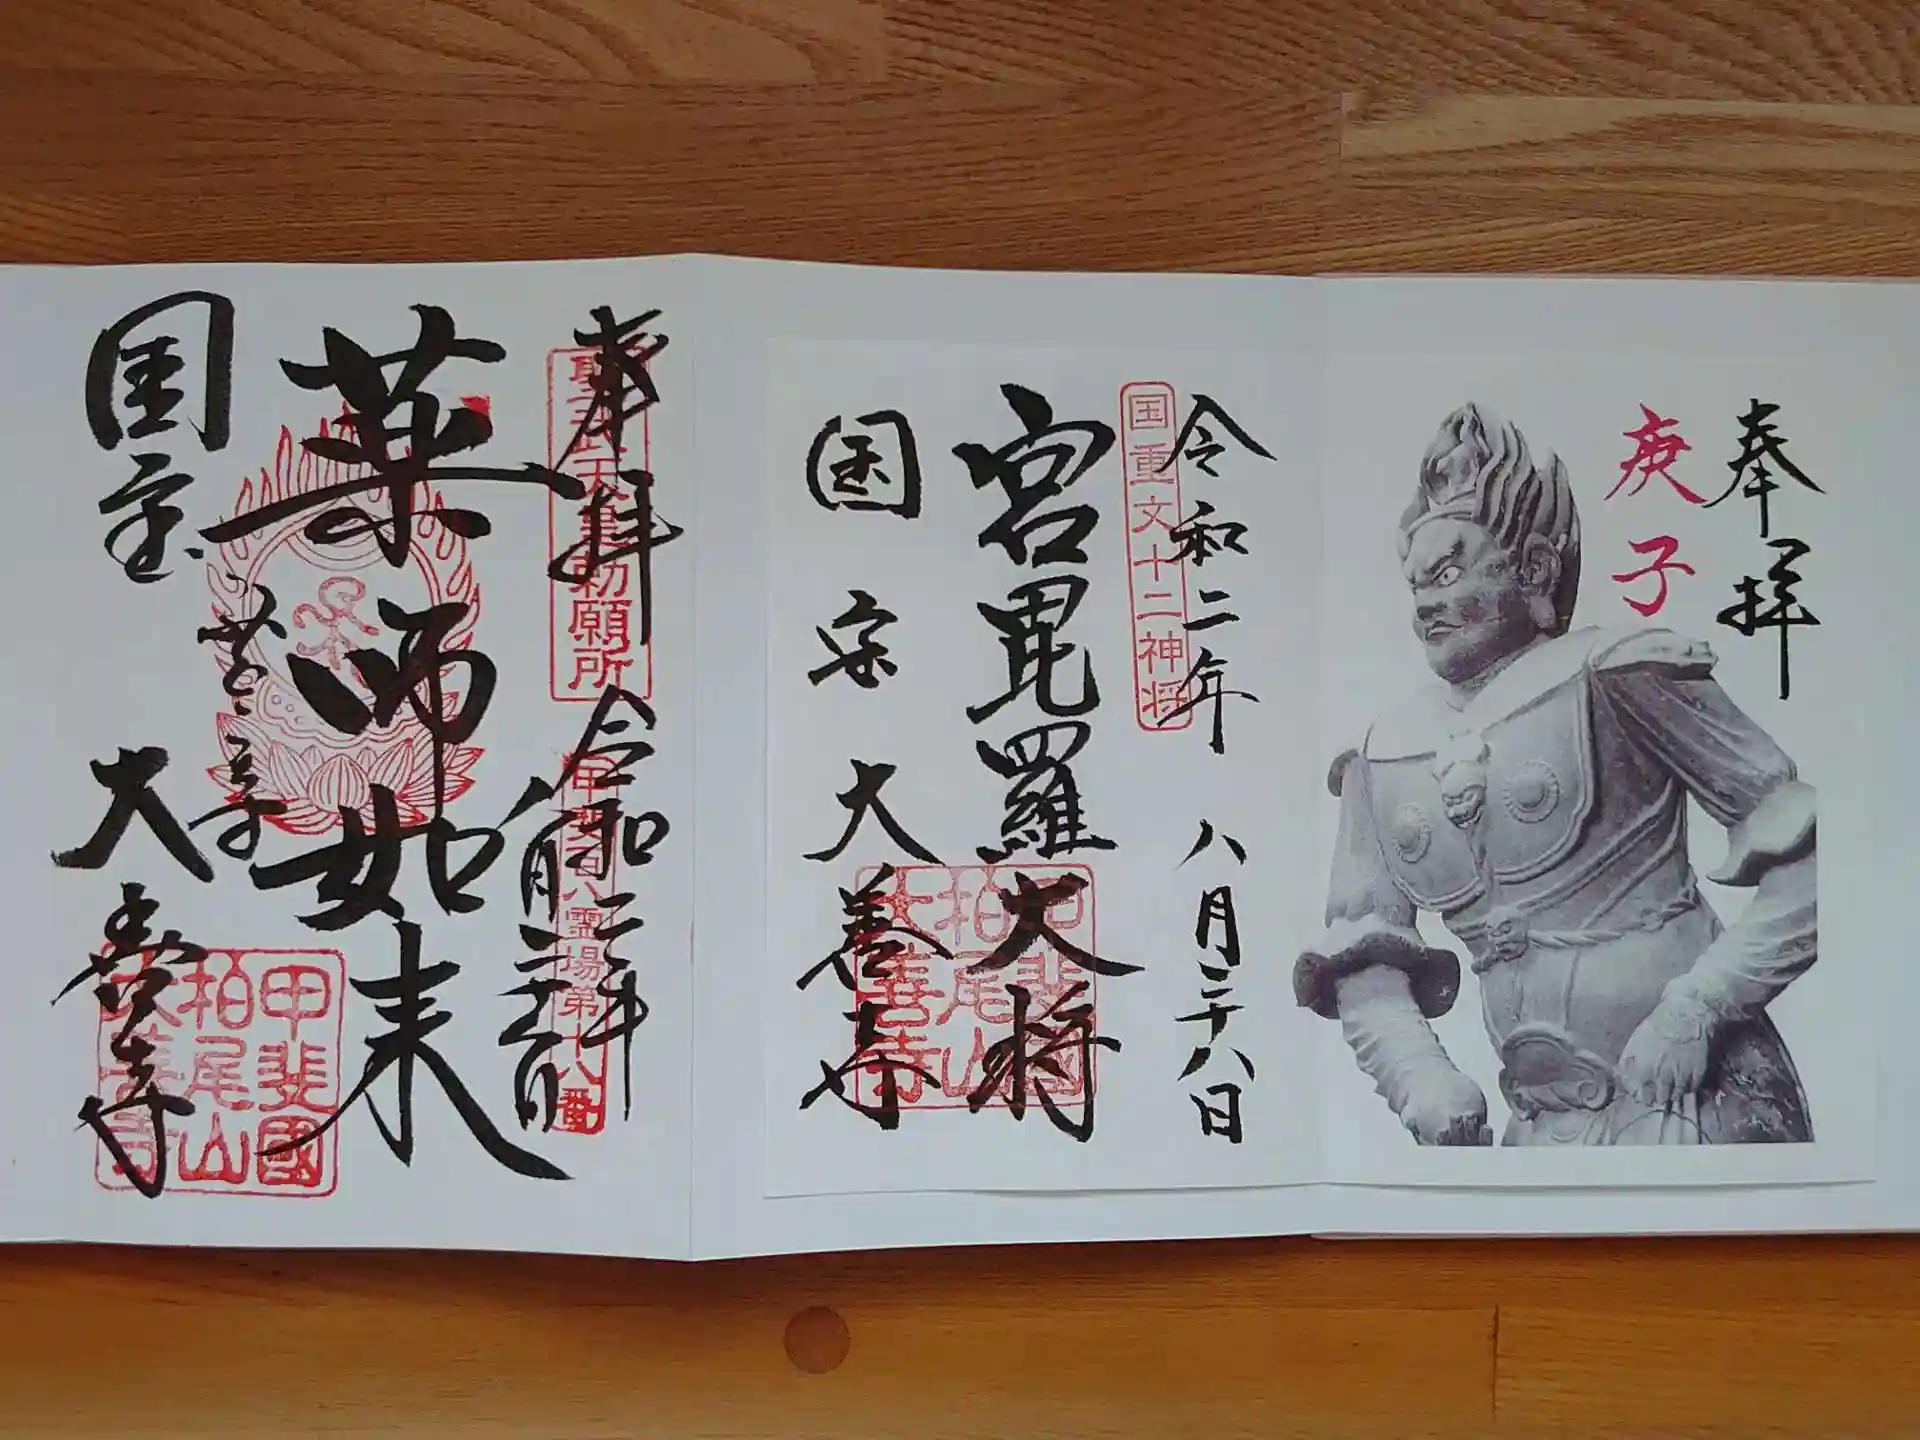 奉拝
庚子
令和二年 八月二十八日
国重文十二神将
宮毘羅大将
国宗 大善寺
甲斐國
柏尾山
大善寺
奉拝
聖武天皇勅願所
令和二年
八月二十八日
甲斐百八霊場第十八番
薬師如来
国宝
大善寺
甲斐國
柏尾山
大善寺